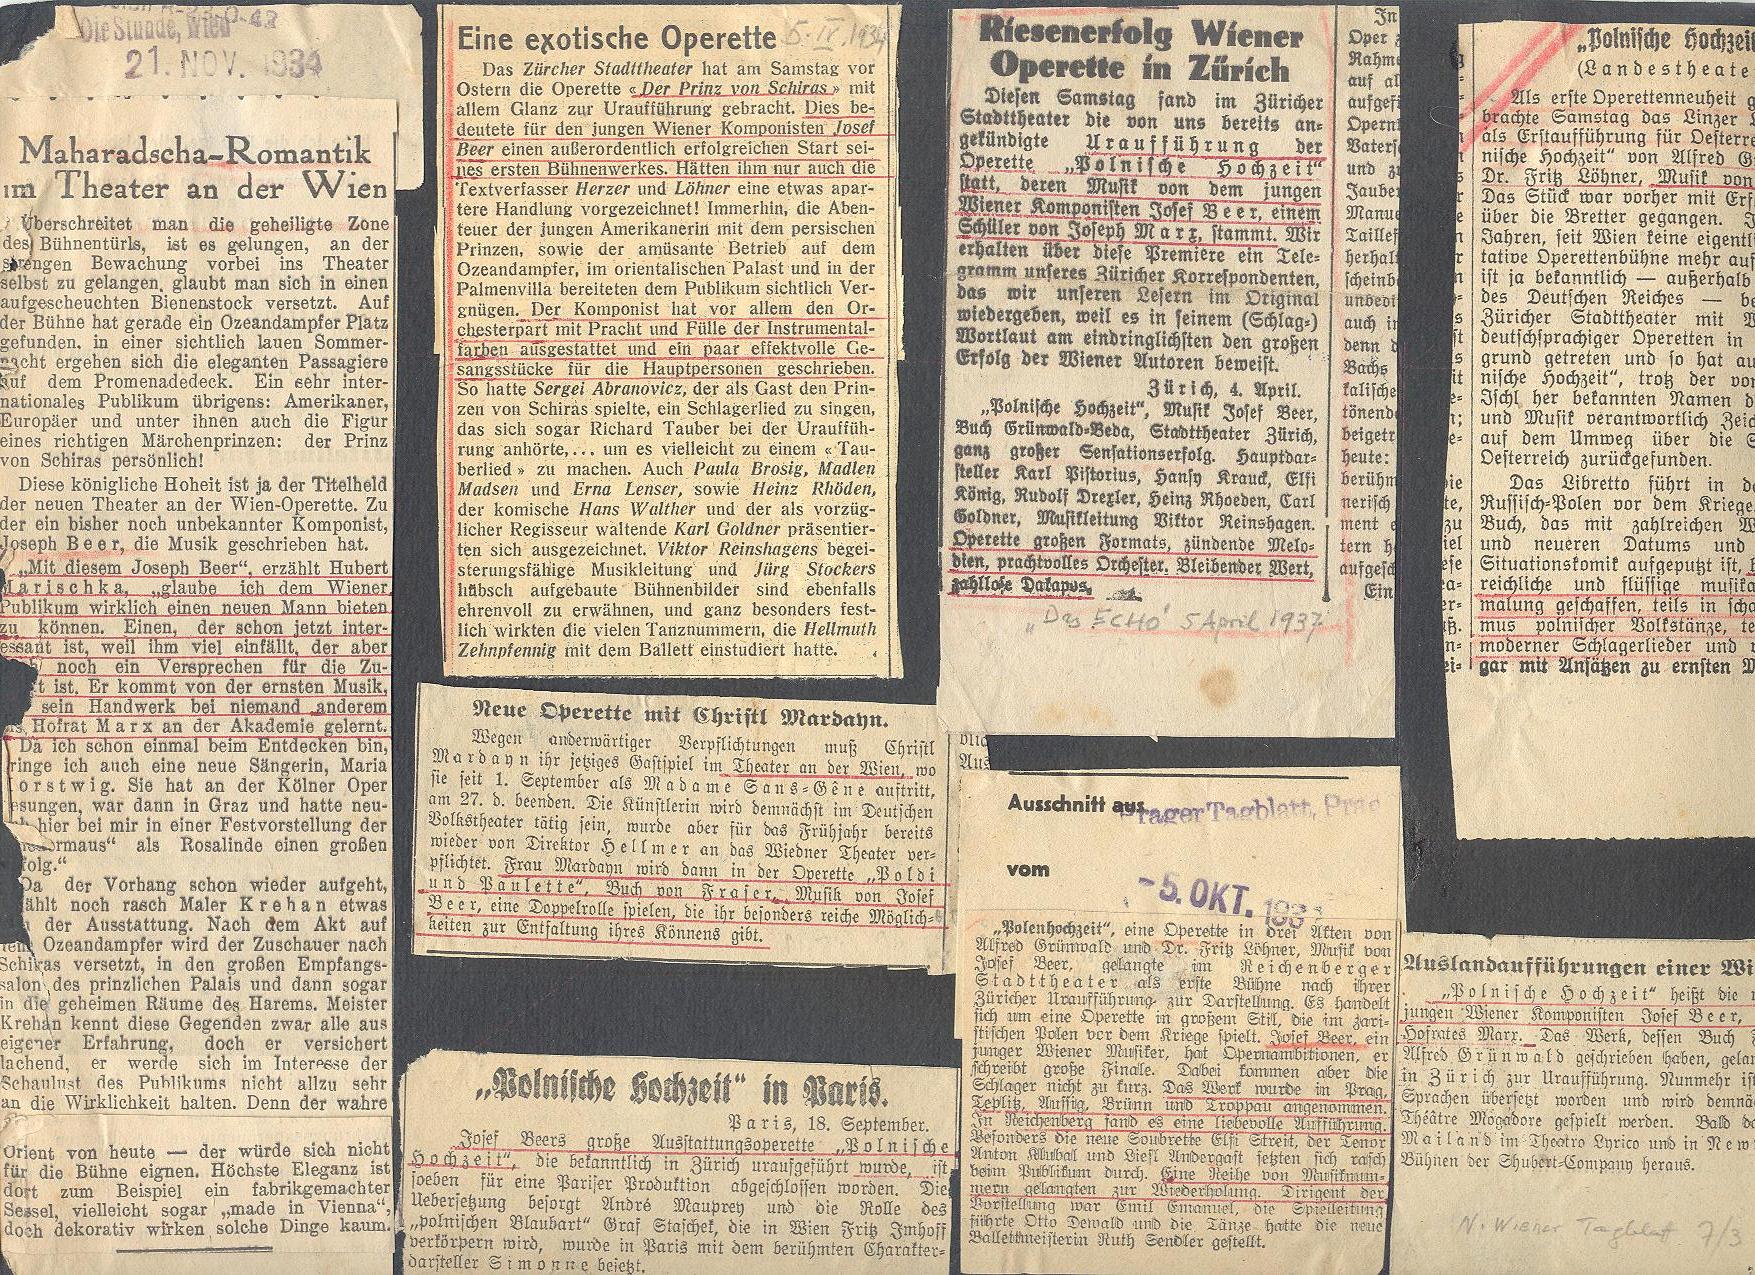 Die Stunde, Wien
21. NOV. 1934
Maharadscha-Romantik
im Theater an der Wien
Überschreitet man die geheiligte Zone
des Bühnentürls, ist es gelungen, an der
strengen Bewachung vorbei ins Theater
selbst zu gelangen, glaubt man sich in einen
aufgescheuchten Bienenstock versetzt. Auf
der Bühne hat gerade ein Ozeandampfer Platz
gefunden. in einer sichtlich lauen Sommer-
nacht ergehen sich die eleganten Passagiere
auf dem Promenadedeck. Ein sehr inter-
nationales Publikum übrigens: Amerikaner,
Europäer und unter ihnen auch die Figur
eines richtigen Märchenprinzen: der Prinz
von Schiras persönlich!
Diese königliche Hoheit ist ja der Titelheld
der neuen Theater an der Wien-Operette. Zu
der ein bisher noch unbekannter Komponist,
Joseph Beer, die Musik geschrieben hat.
„Mit diesem Joseph Beer“, erzählt Hubert
Marischka, „glaube ich dem Wiener
Publikum wirklich einen neuen Mann bieten
zu können. Einen, der schon jetzt inter-
essant ist, weil ihm viel einfällt, der aber
noch ein Versprechen für die Zu-
t ist. Er kommt von der ernsten Musik,
sein Handwerk bei niemand anderem
Hofrat Marx an der Akademie gelernt.
Da ich schon einmal beim Entdecken bin,
ringe ich auch eine neue Sängerin, Maria
orstwig. Sie hat an der Kölner Oper
esungen, war dann in Graz und hatte neu-
hier bei mir in einer Festvorstellung der
ermaus“ als Rosalinde einen großen
folg.“
Da der Vorhang schon wieder aufgeht,
ählt noch rasch Maler Krehan etwas
der Ausstattung. Nach dem Akt auf
Ozeandampfer wird der Zuschauer nach
Schiras versetzt, in den großen Empfangs-
salon des prinzlichen Palais und dann sogar
in die geheimen Räume des Harems. Meister
Krehan kennt diese Gegenden zwar alle aus
eigener Erfahrung, doch er versichert
lachend, er werde sich im Interesse der
Schaulust des Publikums nicht allzu sehr
an die Wirklichkeit halten. Denn der wahre
Orient von heute — der würde sich nicht
für die Bühne eignen. Höchste Eleganz ist
dort zum Beispiel ein fabrikgemachter
Sessel, vielleicht sogar „made in Vienna“,
doch dekorativ wirken solche Dinge kaum.
Eine exotische Operette 5. IV. 1934
Das Zürcher Stadttheater hat am Samstag vor
Ostern die Operette «Der Prinz von Schiras» mit
allem Glanz zur Uraufführung gebracht. Dies be-
deutete für den jungen Wiener Komponisten Josef
Beer einen außerordentlich erfolgreichen Start sei-
nes ersten Bühnenwerkes. Hätten ihm nur auch die
Textverfasser Herzer und Löhner eine etwas apar-
tere Handlung vorgezeichnet! Immerhin, die Aben-
teuer der jungen Amerikanerin mit dem persischen
Prinzen, sowie der amüsante Betrieb auf dem
Ozeandampfer, im orientalischen Palast und in der
Palmenvilla bereiteten dem Publikum sichtlich Ver-
gnügen. Der Komponist hat vor allem den Or-
chesterpart mit Pracht und Fülle der Instrumental-
farben ausgestattet und ein paar effektvolle Ge-
sangsstücke für die Hauptpersonen geschrieben.
So hatte Sergei Abranovicz, der als Gast den Prin-
zen von Schiras spielte, ein Schlagerlied zu singen,
das sich sogar Richard Tauber bei der Urauffüh-
rung anhörte,... um es vielleicht zu einem «Tau-
berlied» zu machen. Auch Paula Brosig, Madlen
Madsen und Erna Lenser, sowie Heinz Rhöden,
der komische Hans Walther und der als vorzüg-
licher Regisseur waltende Karl Goldner präsentier-
ten sich ausgezeichnet. Viktor Reinshagens begei-
sterungsfähige Musikleitung und Jürg Stockers
hübsch aufgebaute Bühnenbilder sind ebenfalls
ehrenvoll zu erwähnen, und ganz besonders fest-
lich wirkten die vielen Tanznummern, die Hellmuth
Zehnpfennig mit dem Ballett einstudiert hatte.
Neue Operette mit Christl Mardayn.
Wegen anderwärtiger Verpflichtungen muß Christl
Mardayn ihr jetziges Gastspiel im Theater an der Wien, wo
sie seit 1. September als Madame Sans-Gêne auftritt,
am 27. d. beenden. Die Künstlerin wird demnächst im Deutschen
Volkstheater tätig sein, wurde aber für das Frühjahr bereits
wieder von Direktor Hellmer an das Wiedner Theater ver-
pflichtet. Frau Mardayn wird dann in der Operette „Poldi
und Paulette“, Buch von Fraser, Musik von Josef
Beer, eine Doppelrolle spielen, die ihr besonders reiche Möglich-
keiten zur Entfaltung ihres Könnens gibt.
„Polnische Hochzeit“ in Paris.
Paris, 18. September.
Josef Beers große Ausstattungsoperette „Polnische
Hochzeit“, die bekanntlich in Zürich uraufgeführt wurde, ist
soeben für eine Pariser Produktion abgeschlossen worden. Die
Uebersetzung besorgt André Mauprey und die Rolle des
„polnischen Blaubart“ Graf Staschek, die in Wien Fritz Imhoff
verkörpern wird, wurde in Paris mit dem berühmten Charakter-
darsteller Simonne besetzt.
Riesenerfolg Wiener
Operette in Zürich
Diesen Samstag fand im Züricher
Stadttheater die von uns bereits an-
gekündigte Uraufführung der
Operette „Polnische Hochzeit“
statt, deren Musik von dem jungen
Wiener Komponisten Josef Beer, einem
Schüler von Joseph Marx, stammt. Wir
erhalten über diese Premiere ein Tele-
gramm unseres Züricher Korrespondenten,
das wir unseren Lesern im Original
wiedergeben, weil es in seinem (Schlag-)
Wortlaut am eindringlichsten den großen
Erfolg der Wiener Autoren beweist.
Zürich, 4. April.
„Polnische Hochzeit“, Musik Josef Beer,
Buch Grünwald-Beda, Stadttheater Zürich,
ganz großer Sensationserfolg. Hauptdar-
steller Karl Pistorius, Hansy Krauck, Elfi
König, Rudolf Drexler, Heinz Rhoeden, Carl
Goldner, Musikleitung Viktor Reinshagen.
Operette großen Formats, zündende Melo-
dien, prachtvolles Orchester. Bleibender Wert,
zahllose Dakapos.
„Das ECHO“ 5 April 1937
In
Oper
Rahme
auf al
aufgef
Opern
Vaters
und z
Zauber
Manue
Taillef
herhal
scheinb
unbedi
auch i
denn d
Bachs
kalische
tönend
beigetr
heute:
berühm
nerisch
ment e
tern h
aufgef
Ein
Ausschnitt aus Prager Tagblatt, Prag
vom
-5. OKT. 193
„Polenhochzeit“, eine Operette in drei Akten von
Alfred Grünwald und Dr. Fritz Löhner, Musik von
Josef Beer, gelangte im Reichenberger
Stadttheater als erste Bühne nach ihrer
Züricher Uraufführung zur Darstellung. Es handelt
sich um eine Operette in großem Stil, die im zari-
stischen Polen vor dem Kriege spielt. Josef Beer, ein
junger Wiener Musiker, hat Opernambitionen, er
schreibt große Finale. Dabei kommen aber die
Schlager nicht zu kurz. Das Werk wurde in Prag,
Teplitz, Aussig, Brünn und Troppau angenommen.
In Reichenberg fand es eine liebevolle Aufführung.
Besonders die neue Soubrette Elfi Streit, der Tenor
Anton Klubal und Liesl Andergast setzten sich rasch
beim Publikum durch. Eine Reihe von Musiknum-
mern gelangten zur Wiederholung. Dirigent der
Vorstellung war Emil Emanuel, die Spielleitung
führte Otto Dewald und die Tänze hatte die neue
Ballettmeisterin Ruth Sendler gestellt.
„Polnische Hochzeit
(Landestheate
Als erste Operettenneuheit g
brachte Samstag das Linzer L
als Erstaufführung für Oesterre
nische Hochzeit“ von Alfred G
Dr. Fritz Löhner, Musik von
Das Stück war vorher mit Erf
über die Bretter gegangen. J
Jahren, seit Wien keine eigentl
tative Operettenbühne mehr auf
ist ja bekanntlich — außerhalb
des Deutschen Reiches — be
Züricher Stadttheater mit W
deutschsprachiger Operetten in
grund getreten und so hat au
nische Hochzeit“, trotz der vo
Ischl her bekannten Namen d
und Musik verantwortlich Zeic
auf dem Umweg über die S
Oesterreich zurückgefunden.
Das Libretto führt in d
Russisch-Polen vor dem Kriege
Buch, das mit zahlreichen W
und neueren Datums und
Situationskomik aufgeputzt ist,
reichliche und flüssige musika
malung geschaffen, teils in scho
mus polnischer Volkstänze, te
moderner Schlagerlieder und
gar mit Ansätzen zu ernsten M
Auslandaufführungen einer Wi
„Polnische Hochzeit“ heißt die
jungen Wiener Komponisten Josef Beer,
Hofrates Marx. Das Werk, dessen Buch
Alfred Grünwald geschrieben haben, gelan
in Zürich zur Uraufführung. Nunmehr ist
Sprachen übersetzt worden und wird demnä
Théâtre Mogadore gespielt werden. Bald da
Mailand im Theatro Lyrico und in New
Bühnen der Shubert-Company heraus.
N. Wiener Tagblatt 7/3